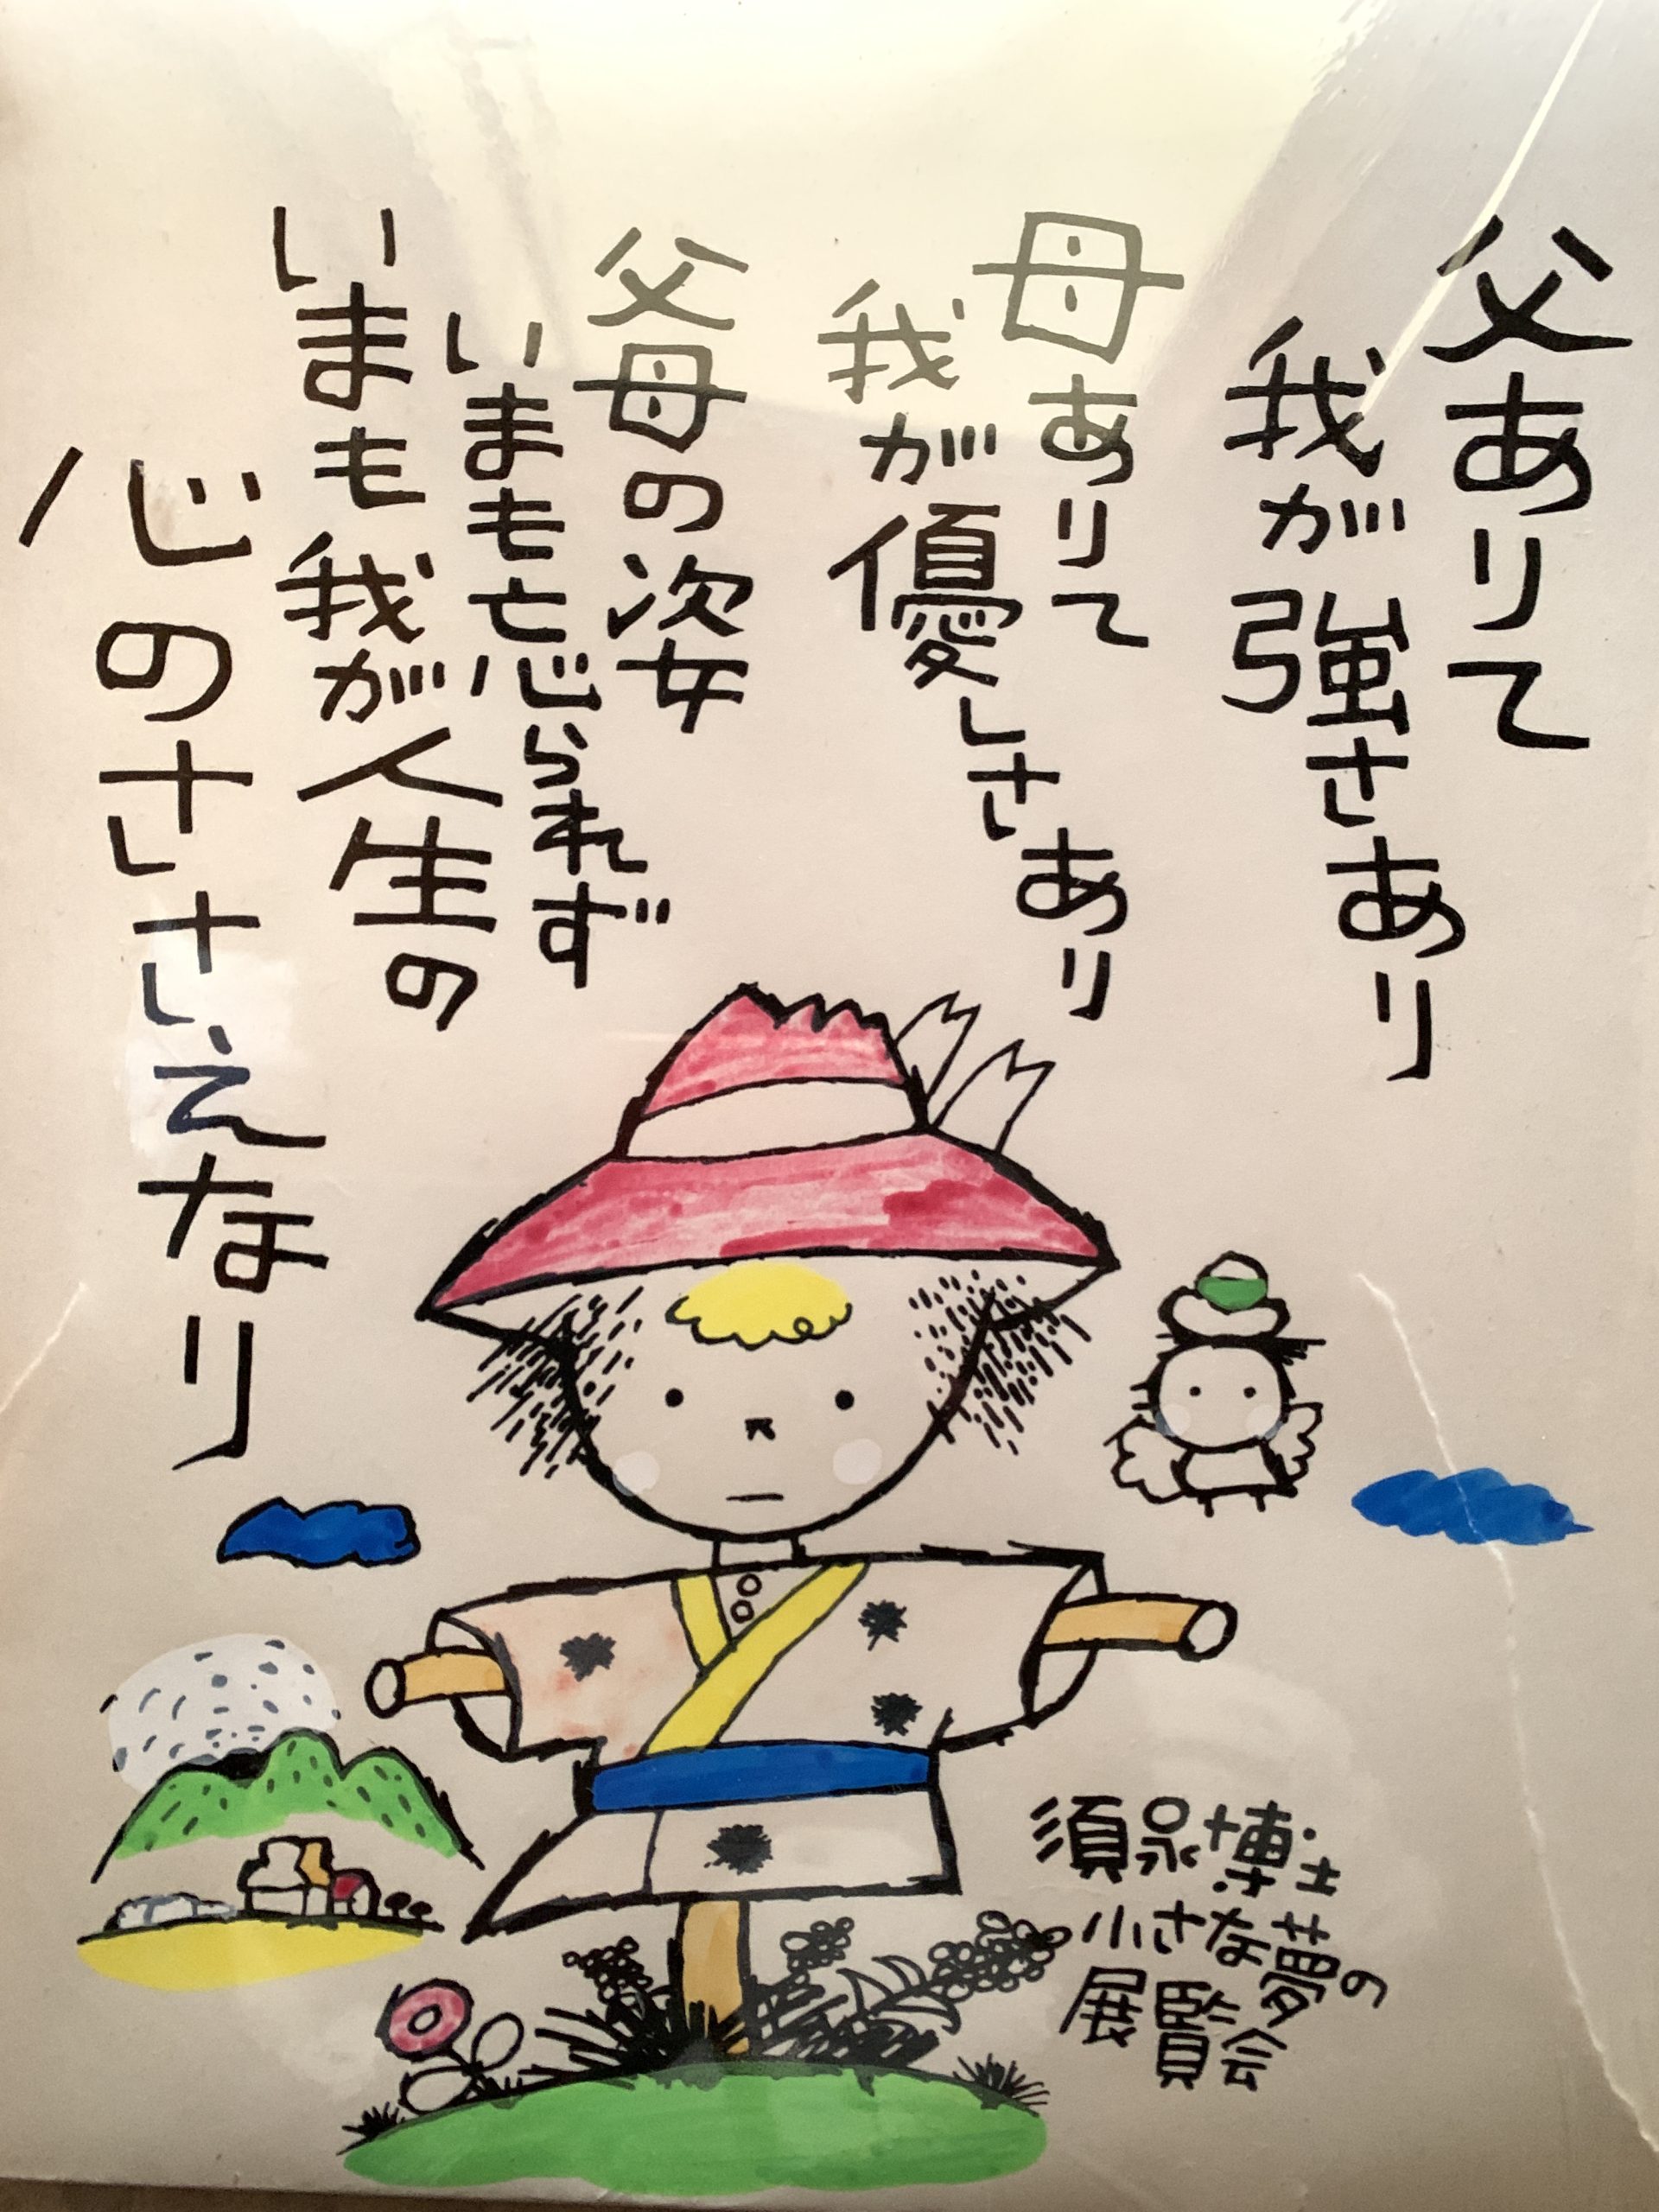 父ありて
我が強さあり
母ありて
我が優しさあり
父母の姿
いまも忘られず
いまも我が人生の
心のささえなり
須永博士
小さな夢の
展覧会